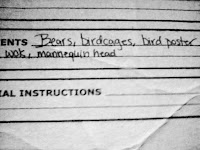 ENTS Bears, birdcages, bird poster
wok, mannequin head
IAL INSTRUCTIONS